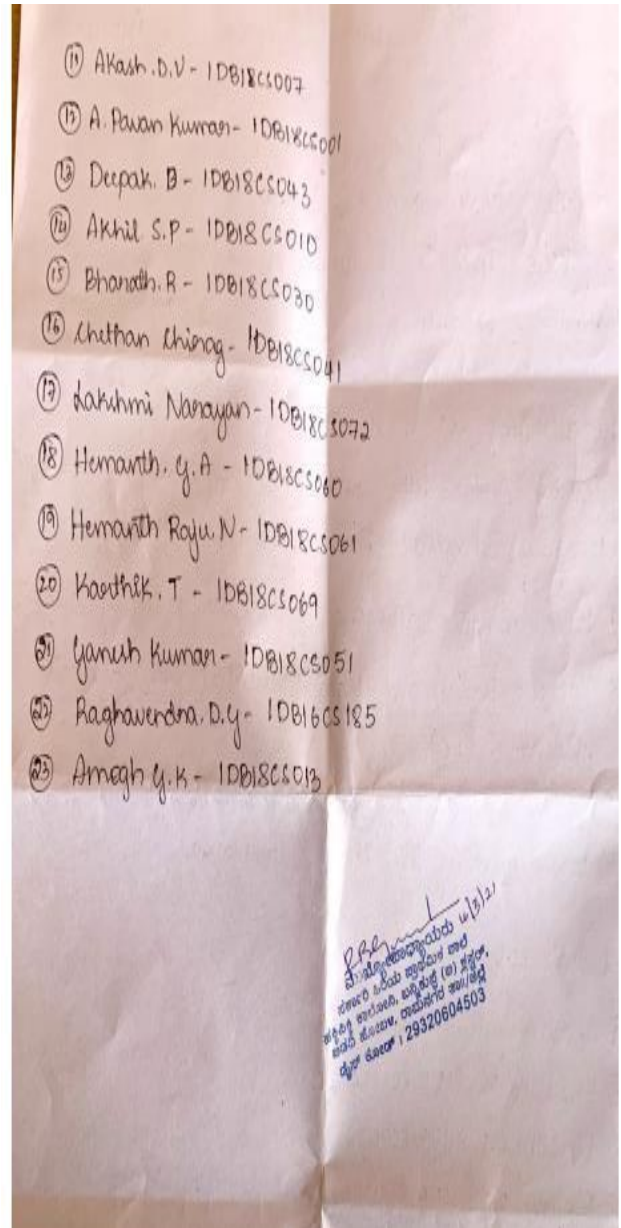 11 Akash.D.V - 1DB18CS007
12 A. Pavan Kumar - 1DB18CS001
13 Deepak. B - 1DB18CS043
14 Akhil S.P - 1DB18CS010
15 Bharath.R - 1DB18CS030
16 Chethan Chirag - 1DB18CS041
17 Lakshmi Narayan - 1DB18CS072
18 Hemanth. G.A - 1DB18CS060
19 Hemanth Raju.N - 1DB18CS061
20 Karthik.T - 1DB18CS069
21 Ganesh Kumar - 1DB18CS051
22 Raghavendra.D.G - 1DB16CS185
23 Amogh G.K - 1DB18CS013
ಮುಖ್ಯೋಪಾಧ್ಯಾಯರು
ಸರ್ಕಾರಿ ಹಿರಿಯ ಪ್ರಾಥಮಿಕ ಶಾಲೆ
ಹಕ್ಕಿಪಿಕ್ಕಿ ಕಾಲೋನಿ, (ಅ) ಕ್ಲಸ್ಟರ್,
ಬಿಡದಿ ಹೋಬಳಿ, ರಾಮನಗರ ತಾ||/ಜಿಲ್ಲೆ
ಡೈಸ್ ಕೋಡ್ : 29320604503